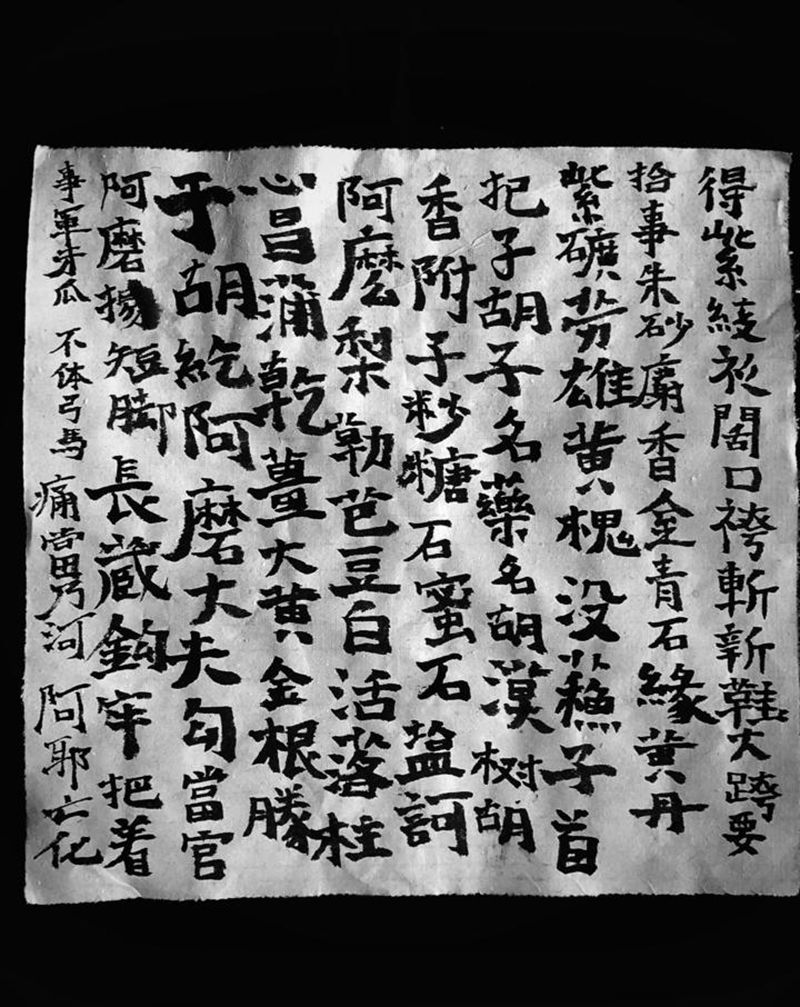 得紫綾衫闊口袴斬新鞋大跨要
拾事朱砂麝香金青石緣黄丹
紫礦苈雄黄槐没蘓子首
把子胡子名藥名胡漠树胡
香附子粆糖石蜜石塩訶
阿麽梨勒芭豆白活落柱
心昌蒲乾薑大黄金根勝
于胡紇阿磨大夫勾當官
阿磨短脚長蔵鈎牢把着
事軍牙瓜不体弓馬痛當乃河阿耶亡化